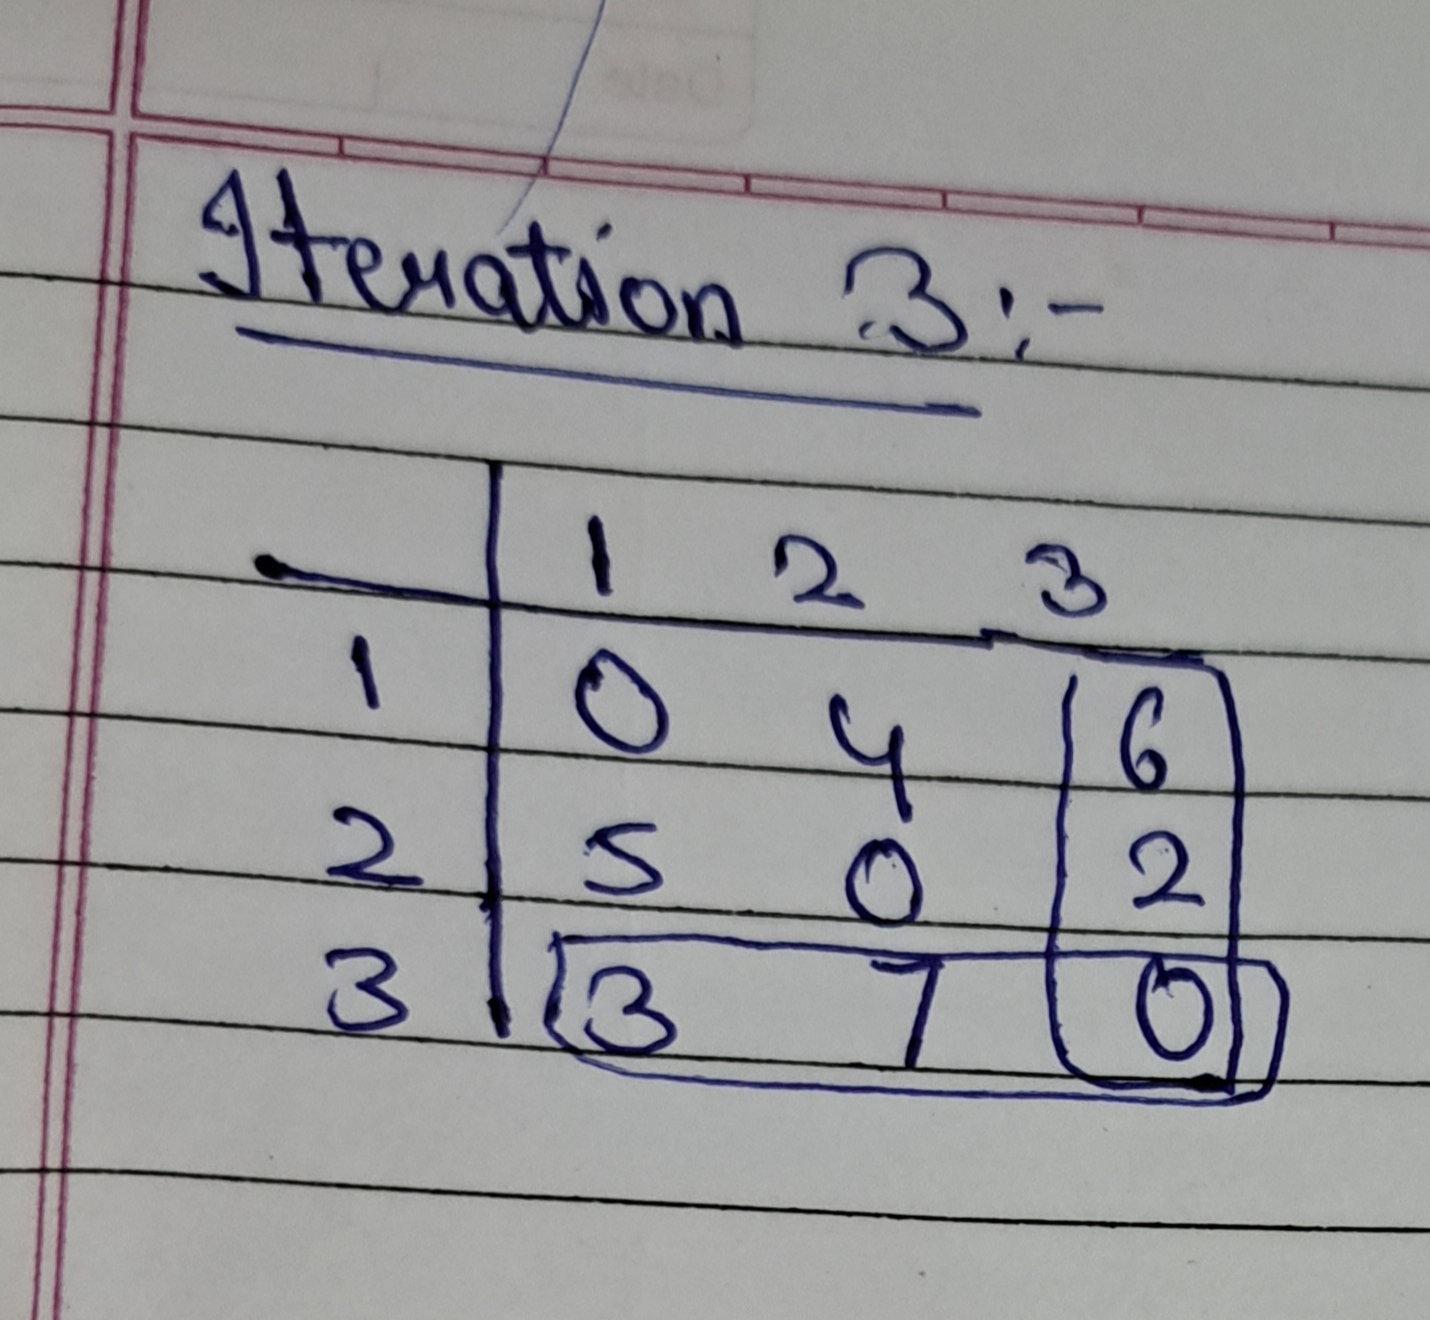 Iteration 3:-
1 2 3
1 0 4 6
2 5 0 2
3 3 7 0